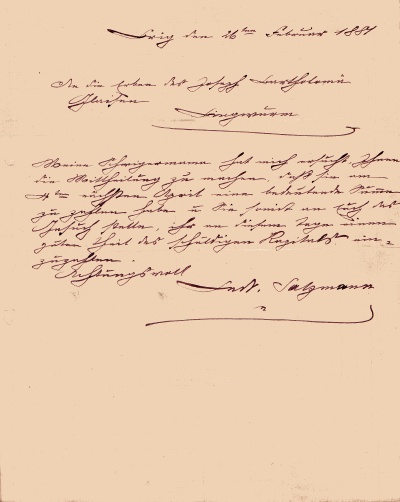 Brig den 26ten Februar 1881
An die Erben des Joseph Bartholomä
Glaisen
Bingwurm
Meine Schwigermann hat mich ersucht Ihnen
die Mittheilung zu machen, daß sie am
4ten nächsten April eine bedeutende Summe
zu zahlen habe u Sie somit an Euch das
Gesuch stelle, ihr an diesem Tage einen
guten Theil des schuldigen Kapitals ein=
zuzahlen.
Achtungsvoll
Ferd. Salzmann